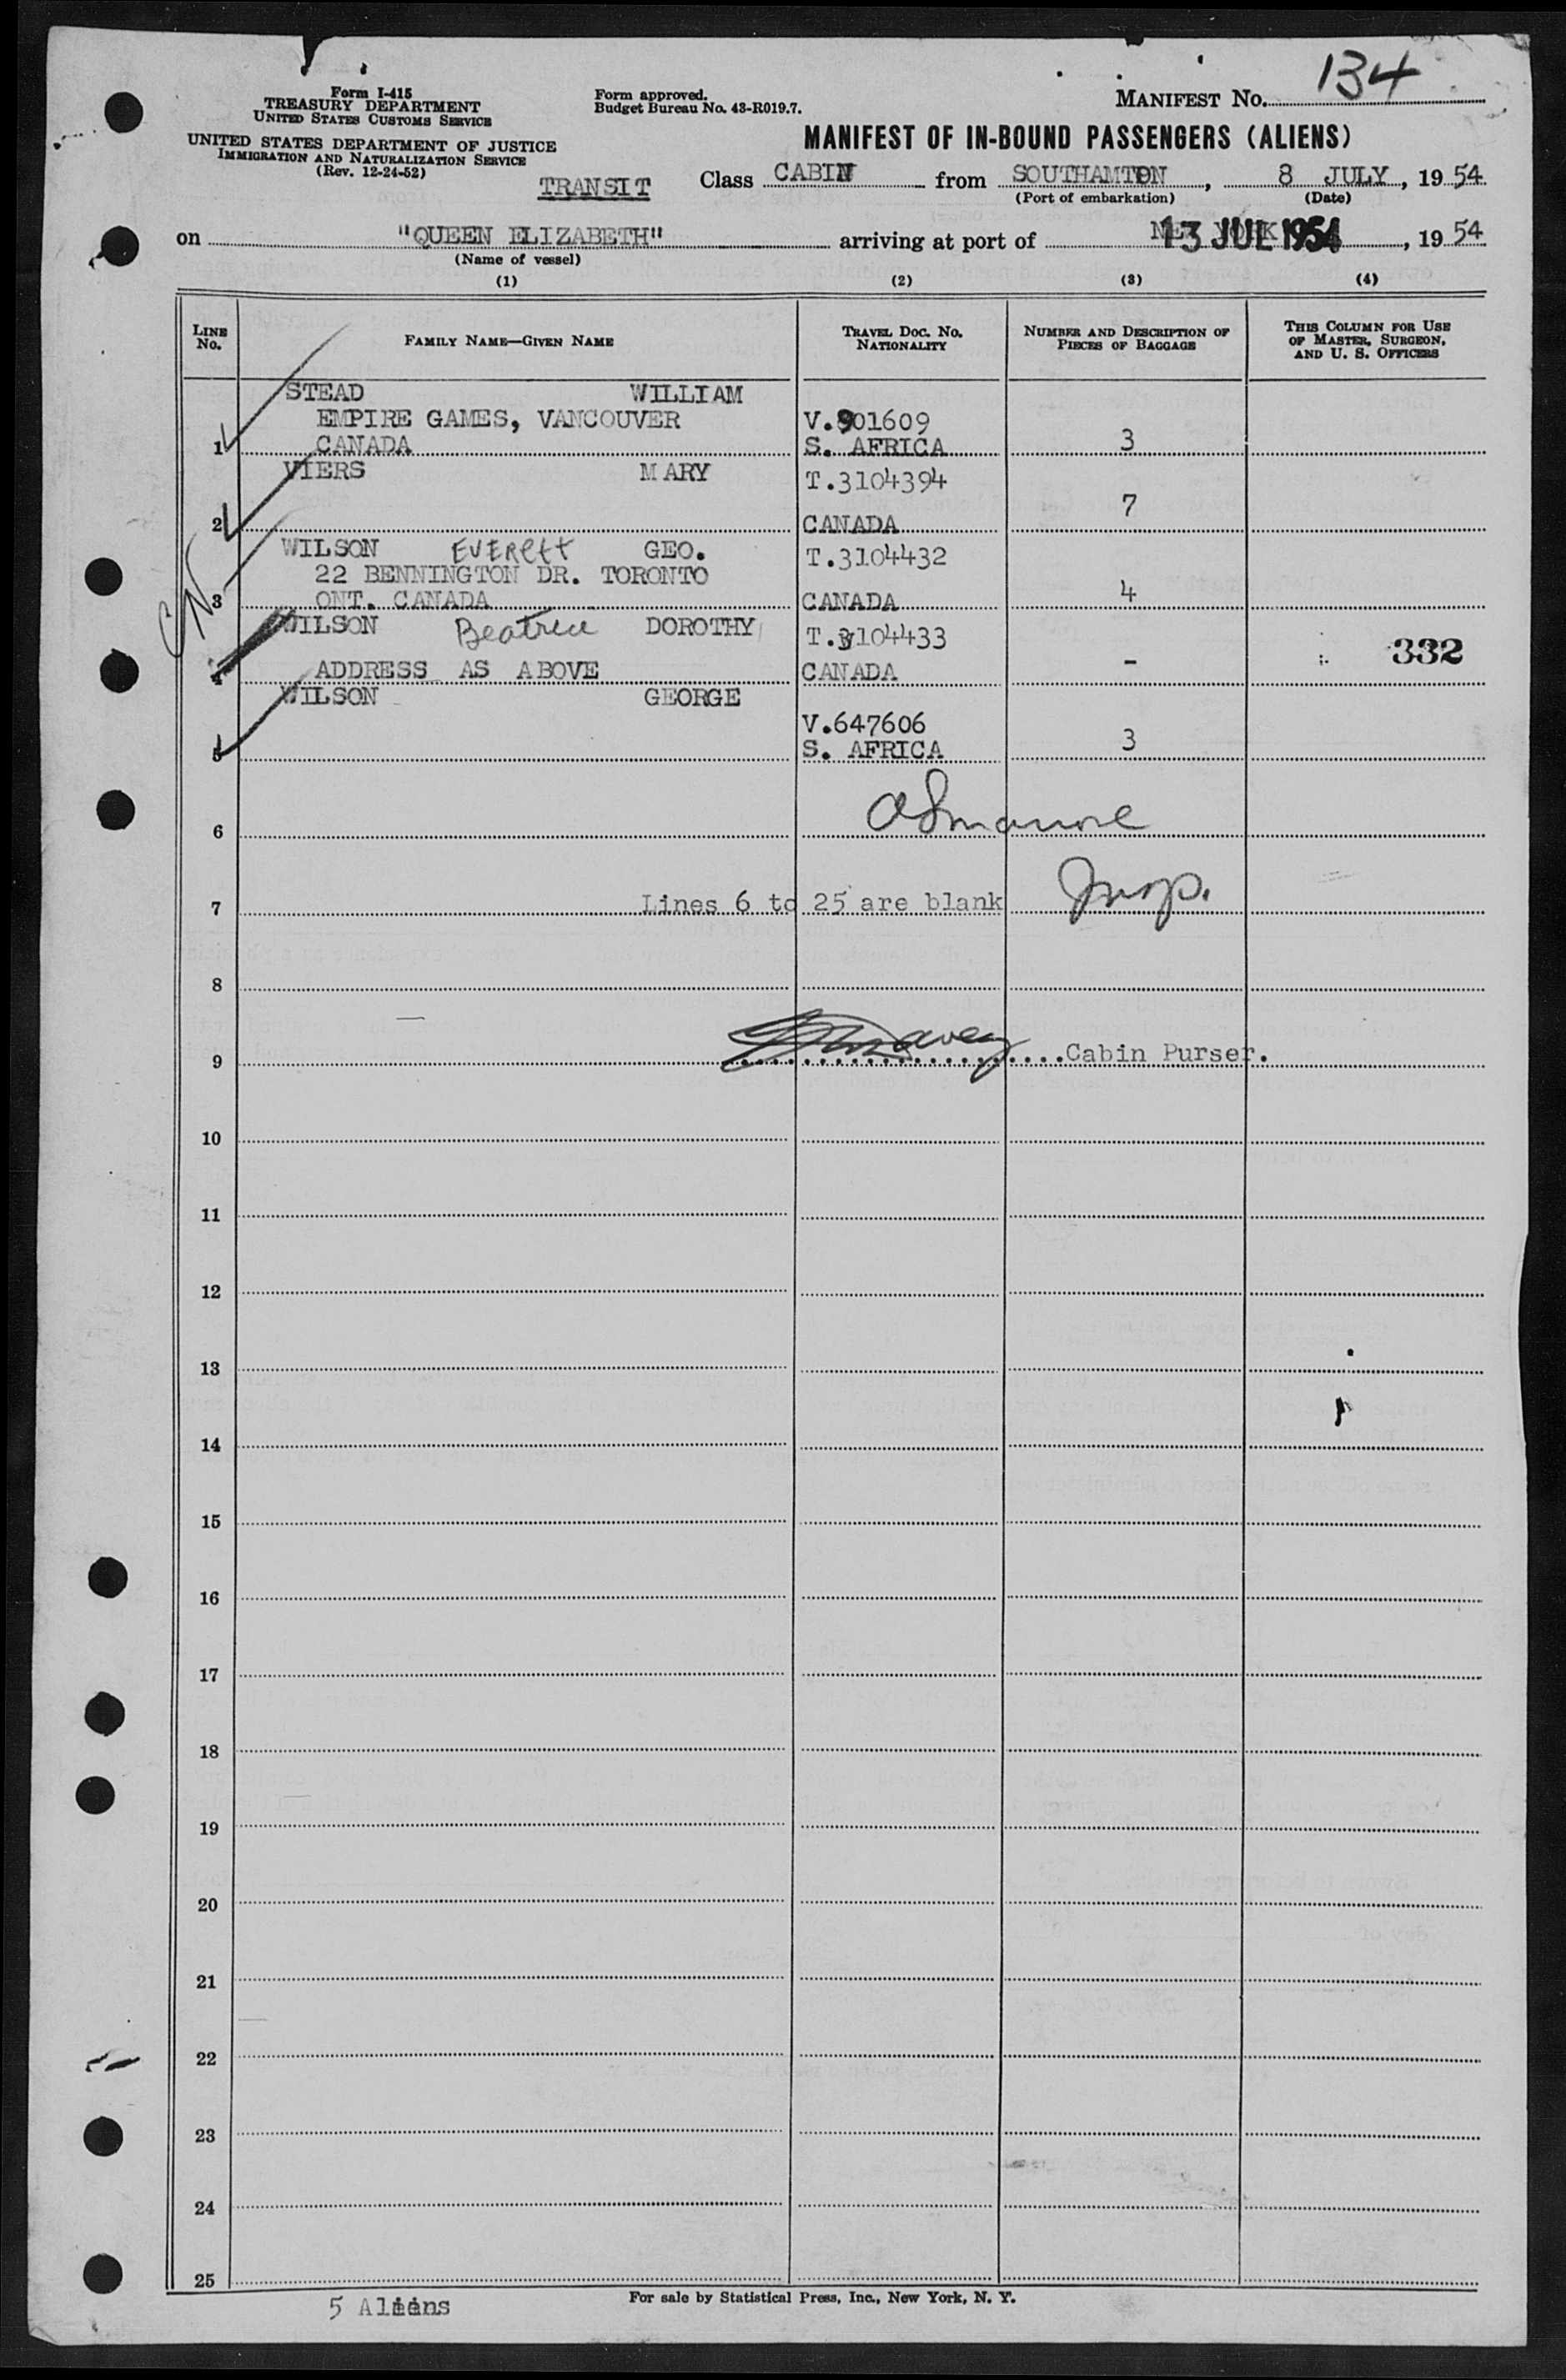 Form I-415
TREASURY DEPARTMENT
UNITED STATES CUSTOMS SERVICE
UNITED STATES DEPARTMENT OF JUSTICE
IMMIGRATION AND NATURALIZATION SERVICE
(Rev. 12-24-52)
Form approved.
Budget Bureau No. 43-R019.7.
MANIFEST NO. 134
MANIFEST OF IN-BOUND PASSENGERS (ALIENS)
TRANSIT Class CABIN from SOUTHAMTON, 8 JULY, 1954
(Port of embarkation) (Date)
on "QUEEN ELIZABETH" arriving at port of NEW YORK 13 JUL 1954, 1954
(Name of vessel)
(1) (2) (3) (4)
LINE NO. FAMILY NAME—GIVEN NAME TRAVEL DOC. NO. NATIONALITY NUMBER AND DESCRIPTION OF PIECES OF BAGGAGE THIS COLUMN FOR USE OF MASTER, SURGEON, AND U. S. OFFICERS
STEAD WILLIAM
EMPIRE GAMES, VANCOUVER V.901609
1 CANADA S. AFRICA 3
VIERS MARY T.3104394
2 CANADA 7
WILSON Everett GEO. T.3104432
22 BENNINGTON DR. TORONTO
3 ONT. CANADA CANADA 4
WILSON Beatrice DOROTHY T.3104433
4 ADDRESS AS ABOVE CANADA - 332
WILSON GEORGE
V.647606
5 S. AFRICA 3
6
7 Lines 6 to 25 are blank Insp.
8
9 Cabin Purser.
10
11
12
13
14
15
16
17
18
19
20
21
22
23
24
25
5 Aliens
For sale by Statistical Press, Inc., New York, N. Y.